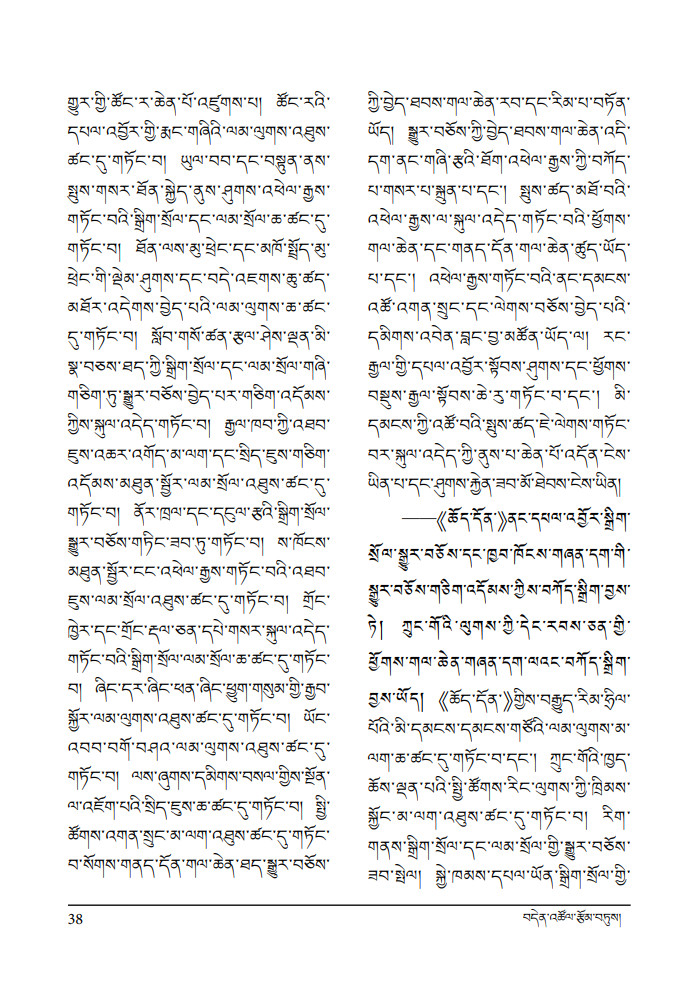 གྱུར་གྱི་ཚོང་ར་ཆེན་པོ་འཛུགས་པ། ཚོང་རའི་
དཔལ་འབྱོར་གྱི་རྨང་གཞིའི་ལམ་ལུགས་འཐུས་
ཚང་དུ་གཏོང་བ། ཡུལ་བབ་དང་བསྟུན་ནས་
སྤུས་གསར་ཐོན་སྐྱེད་ནུས་ཤུགས་འཕེལ་རྒྱས་
གཏོང་བའི་སྒྲིག་སྲོལ་དང་ལམ་སྲོལ་ཆ་ཚང་དུ་
གཏོང་བ། ཐོན་ལས་མུ་ཕྲེང་དང་མཁོ་སྤྲོད་མུ་
ཕྲེང་གི་ལྡེམ་ཤུགས་དང་བདེ་འཇགས་ཆུ་ཚད་
མཐོར་འདེགས་བྱེད་པའི་ལམ་ལུགས་ཆ་ཚང་
དུ་གཏོང་བ། སློབ་གསོ་ཚན་རྩལ་ཤེས་ལྡན་མི་
སྣ་བཅས་ཐད་ཀྱི་སྒྲིག་སྲོལ་དང་ལམ་སྲོལ་གཞི་
གཅིག་ཏུ་སྒྱུར་བཅོས་བྱེད་པར་གཅིག་འདོམས་
ཀྱིས་སྐུལ་འདེད་གཏོང་བ། རྒྱལ་ཁབ་ཀྱི་འཐབ་
ཇུས་འཆར་འགོད་མ་ལག་དང་སྲིད་ཇུས་གཅིག་
འདོམས་མཐུན་སྦྱོར་ལམ་སྲོལ་འཐུས་ཚང་དུ་
གཏོང་བ། ནོར་ཁྲལ་དང་དངུལ་རྩའི་སྒྲིག་སྲོལ་
སྒྱུར་བཅོས་གཏིང་ཟབ་ཏུ་གཏོང་བ། ས་ཁོངས་
མཐུན་སྦྱོར་ངང་འཕེལ་རྒྱས་གཏོང་བའི་འཐབ་
ཇུས་ལམ་སྲོལ་འཐུས་ཚང་དུ་གཏོང་བ། གྲོང་
ཁྱེར་དང་གྲོང་རྡལ་ཅན་དཔེ་གསར་སྐུལ་འདེད་
གཏོང་བའི་སྒྲིག་སྲོལ་ལམ་སྲོལ་ཆ་ཚང་དུ་གཏོང་
བ། ཞིང་དར་ཞིང་ཕན་ཞིང་ཕྱུག་གསུམ་གྱི་རྒྱབ་
སྐྱོར་ལམ་ལུགས་འཐུས་ཚང་དུ་གཏོང་བ། ཡོང་
འབབ་བགོ་བཤའ་ལམ་ལུགས་འཐུས་ཚང་དུ་
གཏོང་བ། ལས་ཞུགས་དམིགས་བསལ་གྱིས་སྔོན་
ལ་འཇོག་པའི་སྲིད་ཇུས་ཆ་ཚང་དུ་གཏོང་བ། སྤྱི་
ཚོགས་འགན་སྲུང་མ་ལག་འཐུས་ཚང་དུ་གཏོང་
བ་སོགས་གནད་དོན་གལ་ཆེན་ཐད་སྒྱུར་བཅོས་
ཀྱི་བྱེད་ཐབས་གལ་ཆེན་རབ་དང་རིམ་པ་བཏོན་
ཡོད། སྒྱུར་བཅོས་ཀྱི་བྱེད་ཐབས་གལ་ཆེན་འདི་
དག་ནང་གཞི་རྩའི་ཐོག་འཕེལ་རྒྱས་ཀྱི་བཀོད་
པ་གསར་པ་སྐྲུན་པ་དང་། སྤུས་ཚད་མཐོ་བའི་
འཕེལ་རྒྱས་ལ་སྐུལ་འདེད་གཏོང་བའི་ཕྱོགས་
གལ་ཆེན་དང་གནད་དོན་གལ་ཆེན་ཚུད་ཡོད་
པ་དང་། འཕེལ་རྒྱས་གཏོང་བའི་ནང་དམངས་
འཚོ་འགན་སྲུང་དང་ལེགས་བཅོས་བྱེད་པའི་
དམིགས་འབེན་བླང་བྱ་མཚོན་ཡོད་ལ། རང་
རྒྱལ་གྱི་དཔལ་འབྱོར་སྟོབས་ཤུགས་དང་ཕྱོགས་
བསྡུས་རྒྱལ་སྟོབས་ཆེ་རུ་གཏོང་བ་དང་། མི་
དམངས་ཀྱི་འཚོ་བའི་སྤུས་ཚད་ཇེ་ལེགས་གཏོང་
བར་སྐུལ་འདེད་ཀྱི་ནུས་པ་ཆེན་པོ་འདོན་ངེས་
ཡིན་པ་དང་ཤུགས་རྐྱེན་ཟབ་མོ་ཐེབས་ངེས་ཡིན།
——《ཆོད་དོན་》ནང་དཔལ་འབྱོར་སྒྲིག་
སྲོལ་སྒྱུར་བཅོས་དང་ཁྱབ་ཁོངས་གཞན་དག་གི་
སྒྱུར་བཅོས་གཅིག་འདོམས་ཀྱིས་བཀོད་སྒྲིག་བྱས་
ཏེ། ཀྲུང་གོའི་ལུགས་ཀྱི་དེང་རབས་ཅན་གྱི་
ཕྱོགས་གལ་ཆེན་གཞན་དག་ལའང་བཀོད་སྒྲིག་
བྱས་ཡོད། 《ཆོད་དོན་》གྱིས་བརྒྱུད་རིམ་ཧྲིལ་
པོའི་མི་དམངས་དམངས་གཙོའི་ལམ་ལུགས་མ་
ལག་ཆ་ཚང་དུ་གཏོང་བ་དང་། ཀྲུང་གོའི་ཁྱད་
ཆོས་ལྡན་པའི་སྤྱི་ཚོགས་རིང་ལུགས་ཀྱི་ཁྲིམས་
སྐྱོང་མ་ལག་འཐུས་ཚང་དུ་གཏོང་བ། རིག་
གནས་སྒྲིག་སྲོལ་དང་ལམ་སྲོལ་གྱི་སྒྱུར་བཅོས་
ཟབ་སྤེལ། སྐྱེ་ཁམས་དཔལ་ཡོན་སྒྲིག་སྲོལ་གྱི་
38
བདེན་འཚོལ་རྩོམ་བཏུས།